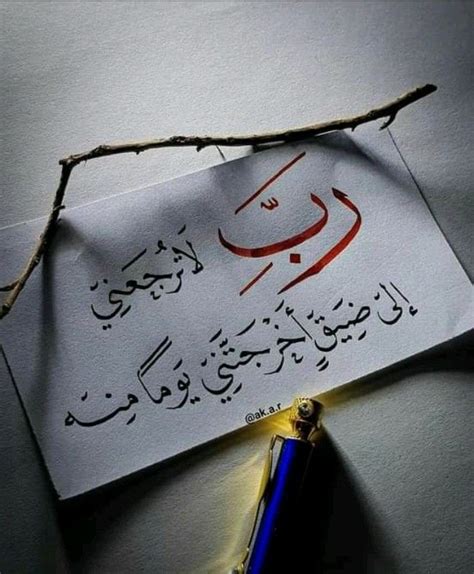 رَبِّ لَا تُرجُعَنِيّ
إلىّ ضِيَقٍ أخْرَجَتَنّيَ يَومًا مِنهِ
@ak.a.r